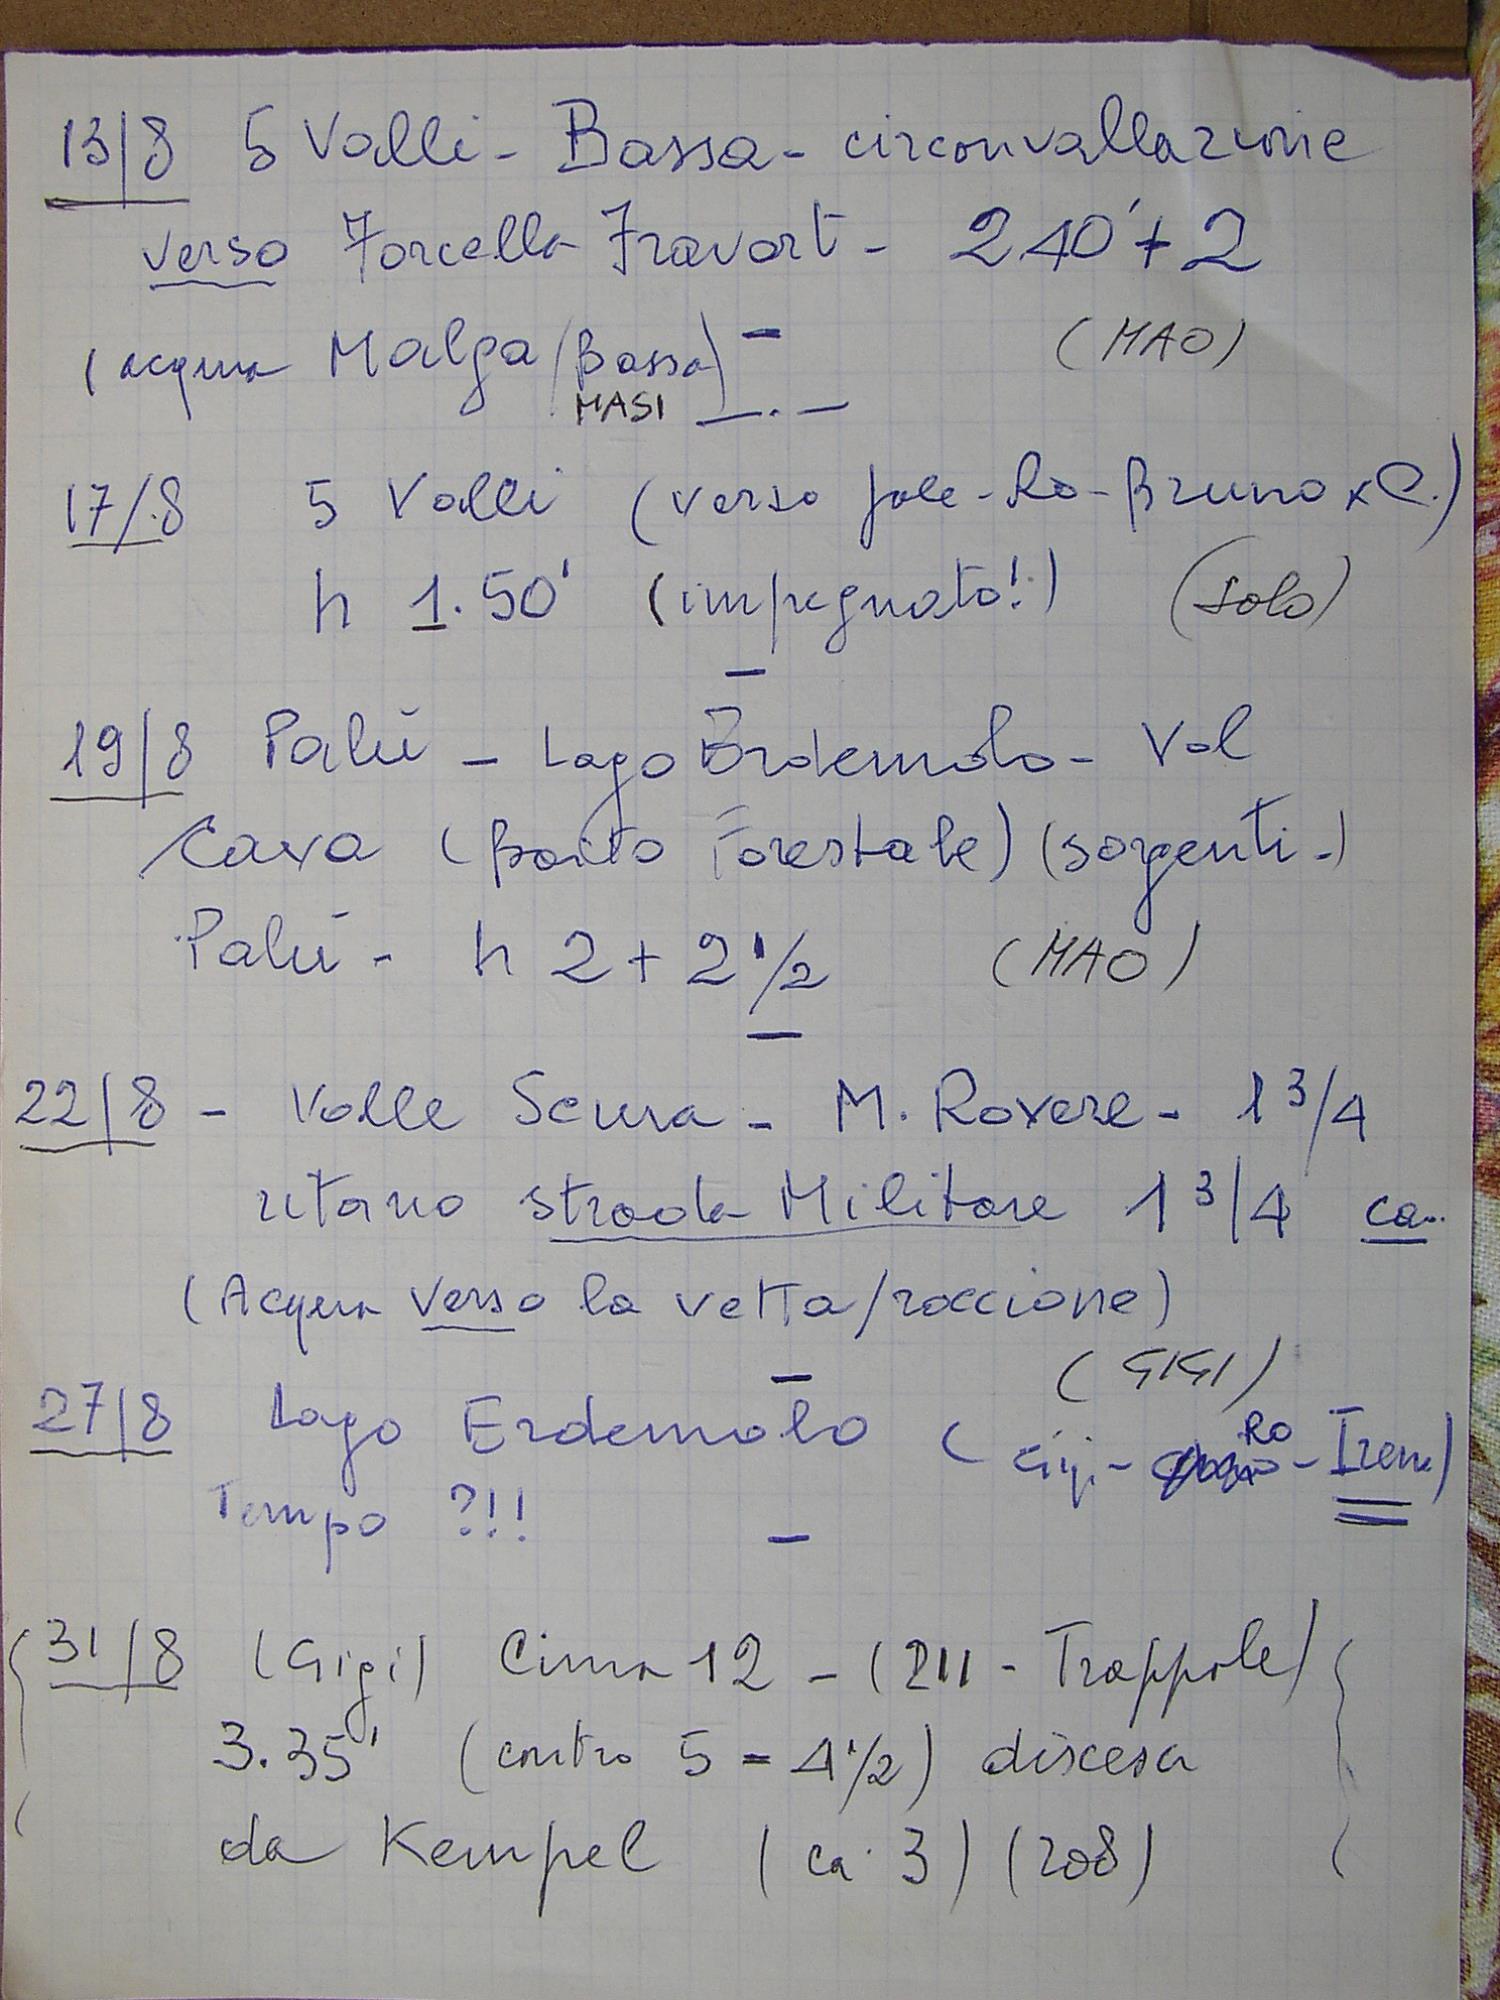 13/8 5 Valli - Bassa - circonvallazione
verso Forcella Fravort - 2 40' + 2
(acqua Malga (Bassa) - (MAO)
MASI
17/8 5 Valli (verso - Ro - Bruno x C.)
h 1.50' (impegnato!) (solo)
19/8 Palù - Lago Erdemolo - Val
Cava (baito Forestale) (sorgenti -)
Palù - h 2 + 2 1/2 (MAO)
22/8 - Valle Scura - M. Rovere - 1 3/4
ritorno strada Militare 1 3/4 ca..
(Acqua verso la vetta/roccione)
(GIGI)
27/8 Lago Erdemolo (Gigi - Ro - Irene)
Tempo ?!!
31/8 (Gigi) Cima 12 - (211 - Trappole)
3.35' (contro 5 = 4 1/2) discesa
da Kempel (ca. 3) (208)